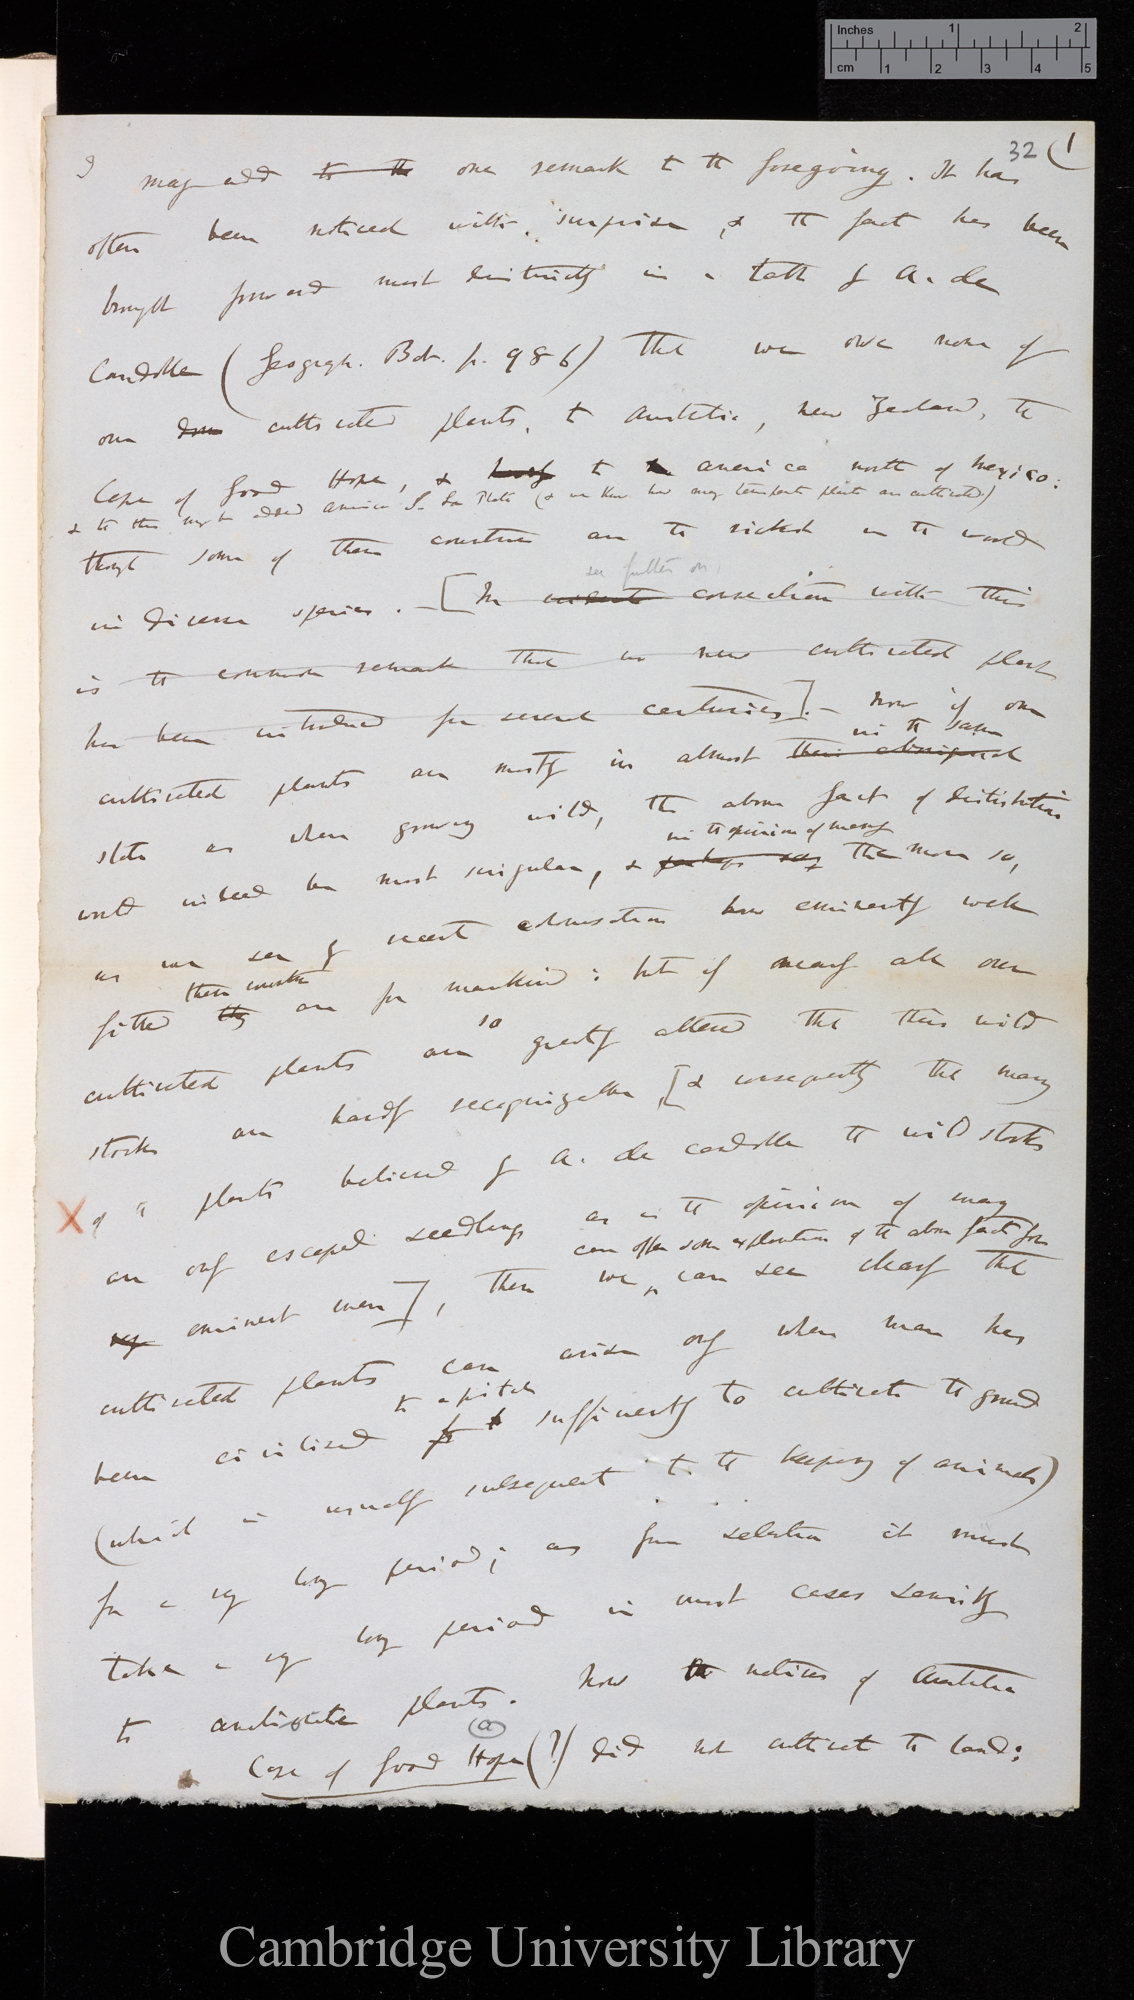 Inches 1 2
cm 1 2 3 4 5
32 (1
I may add to the one remark to the foregoing. It has
often been noticed with surprise, & the fact has been
brought forward most distinctly in a table by A. de
Candolle (Geograph. Bot. p. 986) that we owe none of
our cultivated plants, to Australia, New Zealand, the
Cape of Good Hope, & to America north of Mexico:
& to this might be added America S. La Plata (& we know how many temperate plants are cultivated)
though some of these countries are the richest in the world
in diverse species. — [In connection with this
see further on
is the common remark that no new cultivated plant
has been introduced for several centuries]. — Now if our
cultivated plants are mostly in almost their aboriginal
in the same
state as when growing wild, the above fact of distribution
would indeed be most singular, & perhaps say the more so,
in the opinion of many
as we see by recent colonisation how eminently well
fitted they are for mankind: but if nearly all our
these countries
cultivated plants are so greatly altered that their wild
stocks are hardly recognizable, [& consequently that many
X of the plants believed by A. de Candolle the wild stocks
are only escaped seedlings as is the opinion of many
very eminent men], then we can see clearly that
can offer some explanation of the above fact for
cultivated plants can arise only when man has
been civilised sufficiently to cultivate the ground
to a pitch
(which is usually subsequent to the keeping of animals)
for a very long period; as from selection it must
take a very long period in most cases
to plants. Now the natives of Australia
(a)
Cape of Good Hope (?) did not cultivate the land;
Cambridge University Library